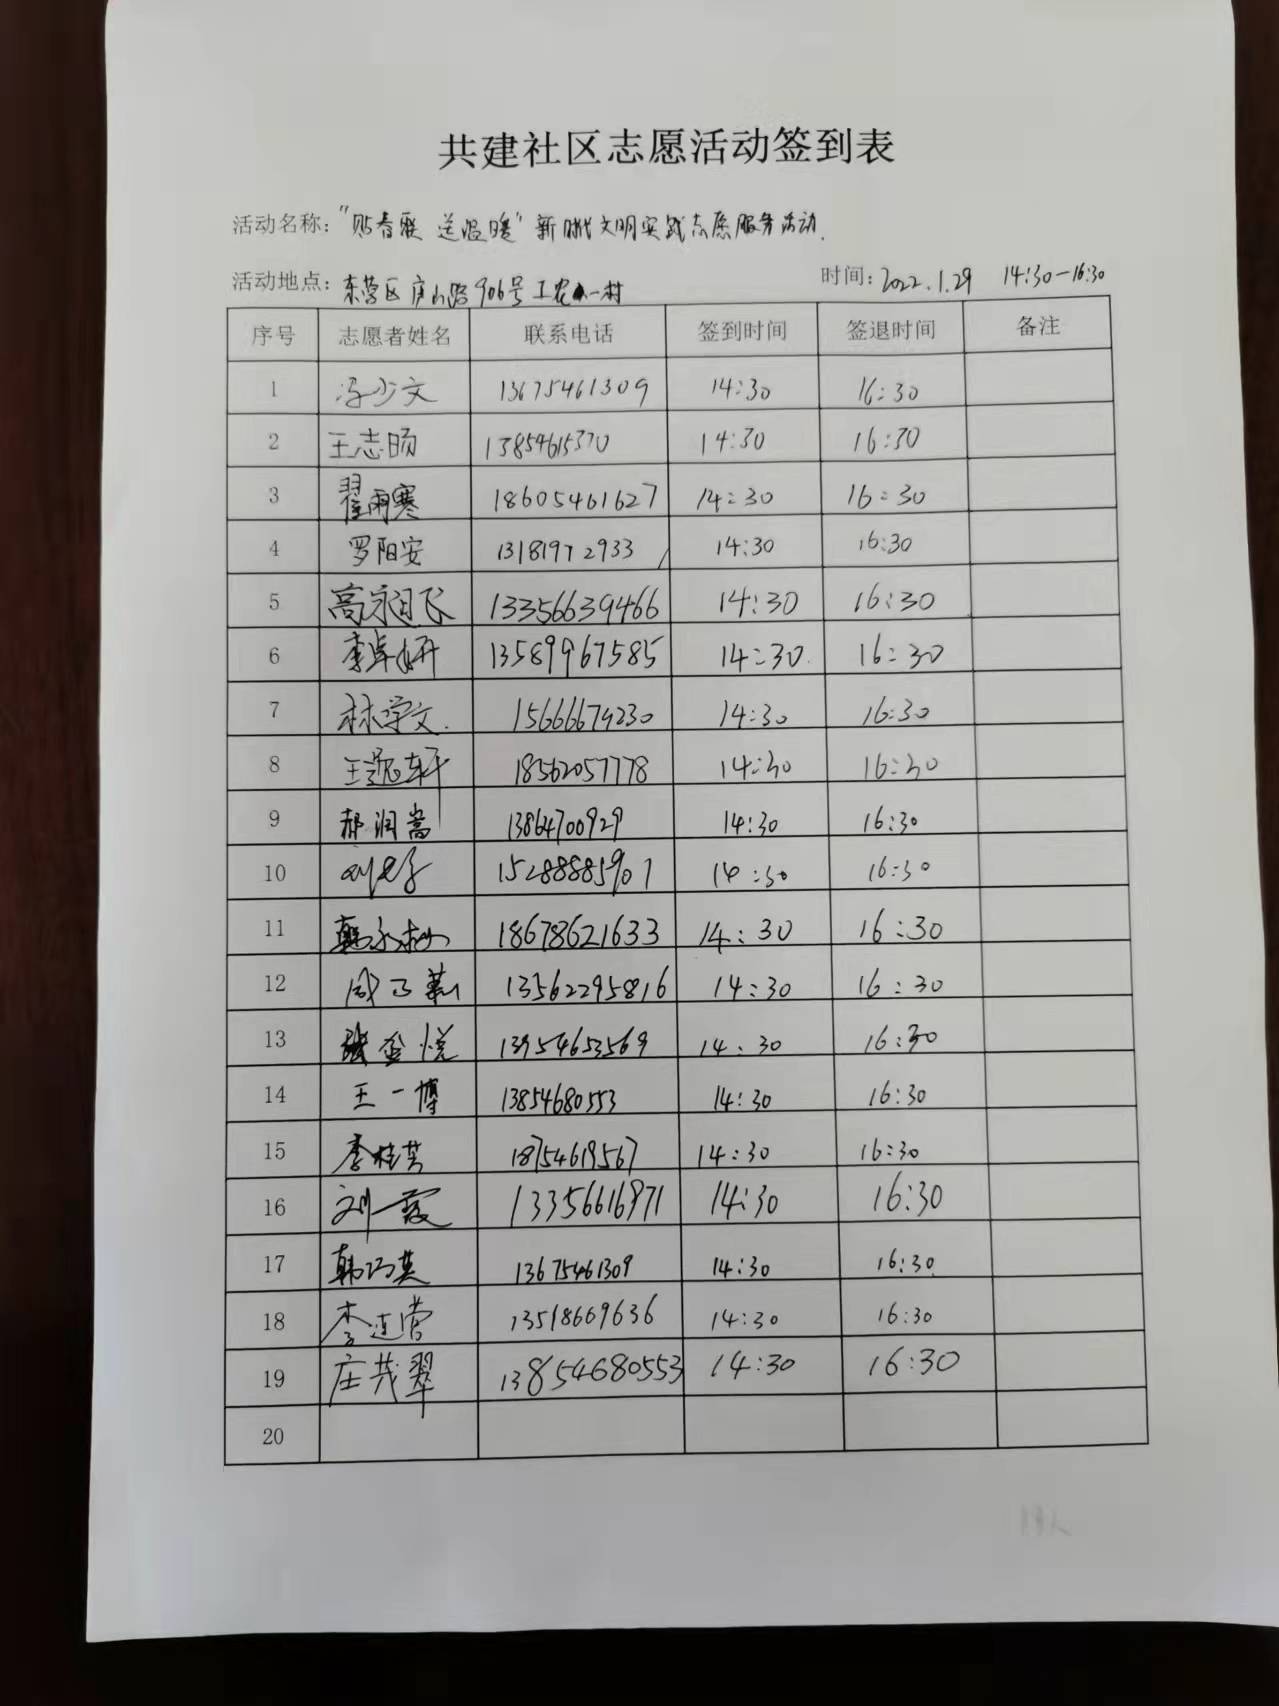 共建社区志愿活动签到表
活动名称："贴春联 送温暖"新时代文明实践志愿服务活动.
活动地点：东营区庐山路906号工农一村 时间：2022.1.29 14:30-16:30
序号 志愿者姓名 联系电话 签到时间 签退时间 备注
1 冯少文 13675461309 14:30 16:30
2 王志旸 13854615370 14:30 16:30
3 翟雨寒 18605461627 14:30 16:30
4 罗阳安 13181972933 14:30 16:30
5 高永润飞 13356639466 14:30 16:30
6 李卓妍 13589967585 14:30 16:30
7 林学文. 15666674230 14:30 16:30
8 王逸轩 18562057778 14:30 16:30
9 郝润嵩 13864700929 14:30 16:30
10 15288885907 14:30 16:30
11 18678621633 14:30 16:30
12 13562295816 14:30 16:30
13 13954653569 14:30 16:30
14 王一博 13854680553 14:30 16:30
15 李桂芳 18754619567 14:30 16:30
16 刘霞 13356616971 14:30 16:30
17 韩巧英 13675461309 14:30 16:30
18 李连营 13518669636 14:30 16:30
19 庄茂翠 13854680553 14:30 16:30
20